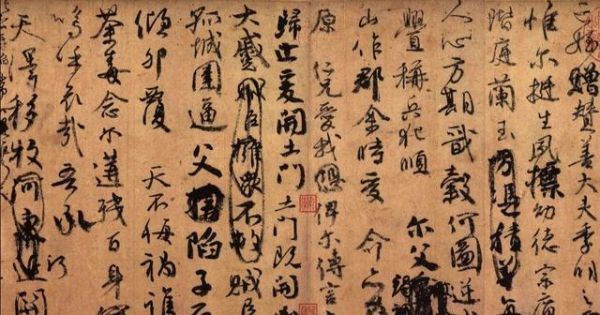 亡姪贈贊善大夫季明之
惟爾挺生夙標幼德宗廟
階庭蘭玉方憑積善每
人心方期戩穀何圖逆
釁稱兵犯順爾父
山作郡余時受命亦
原仁兄愛我俾爾傳言
歸止爰開土門土門既開
大蹙賊臣擁衆不救賊臣
孤城圍逼父陷子
傾卵覆天不悔禍誰
荼毒念爾遘殘百身
嗚呼哀哉吾承
天澤移牧河東近關